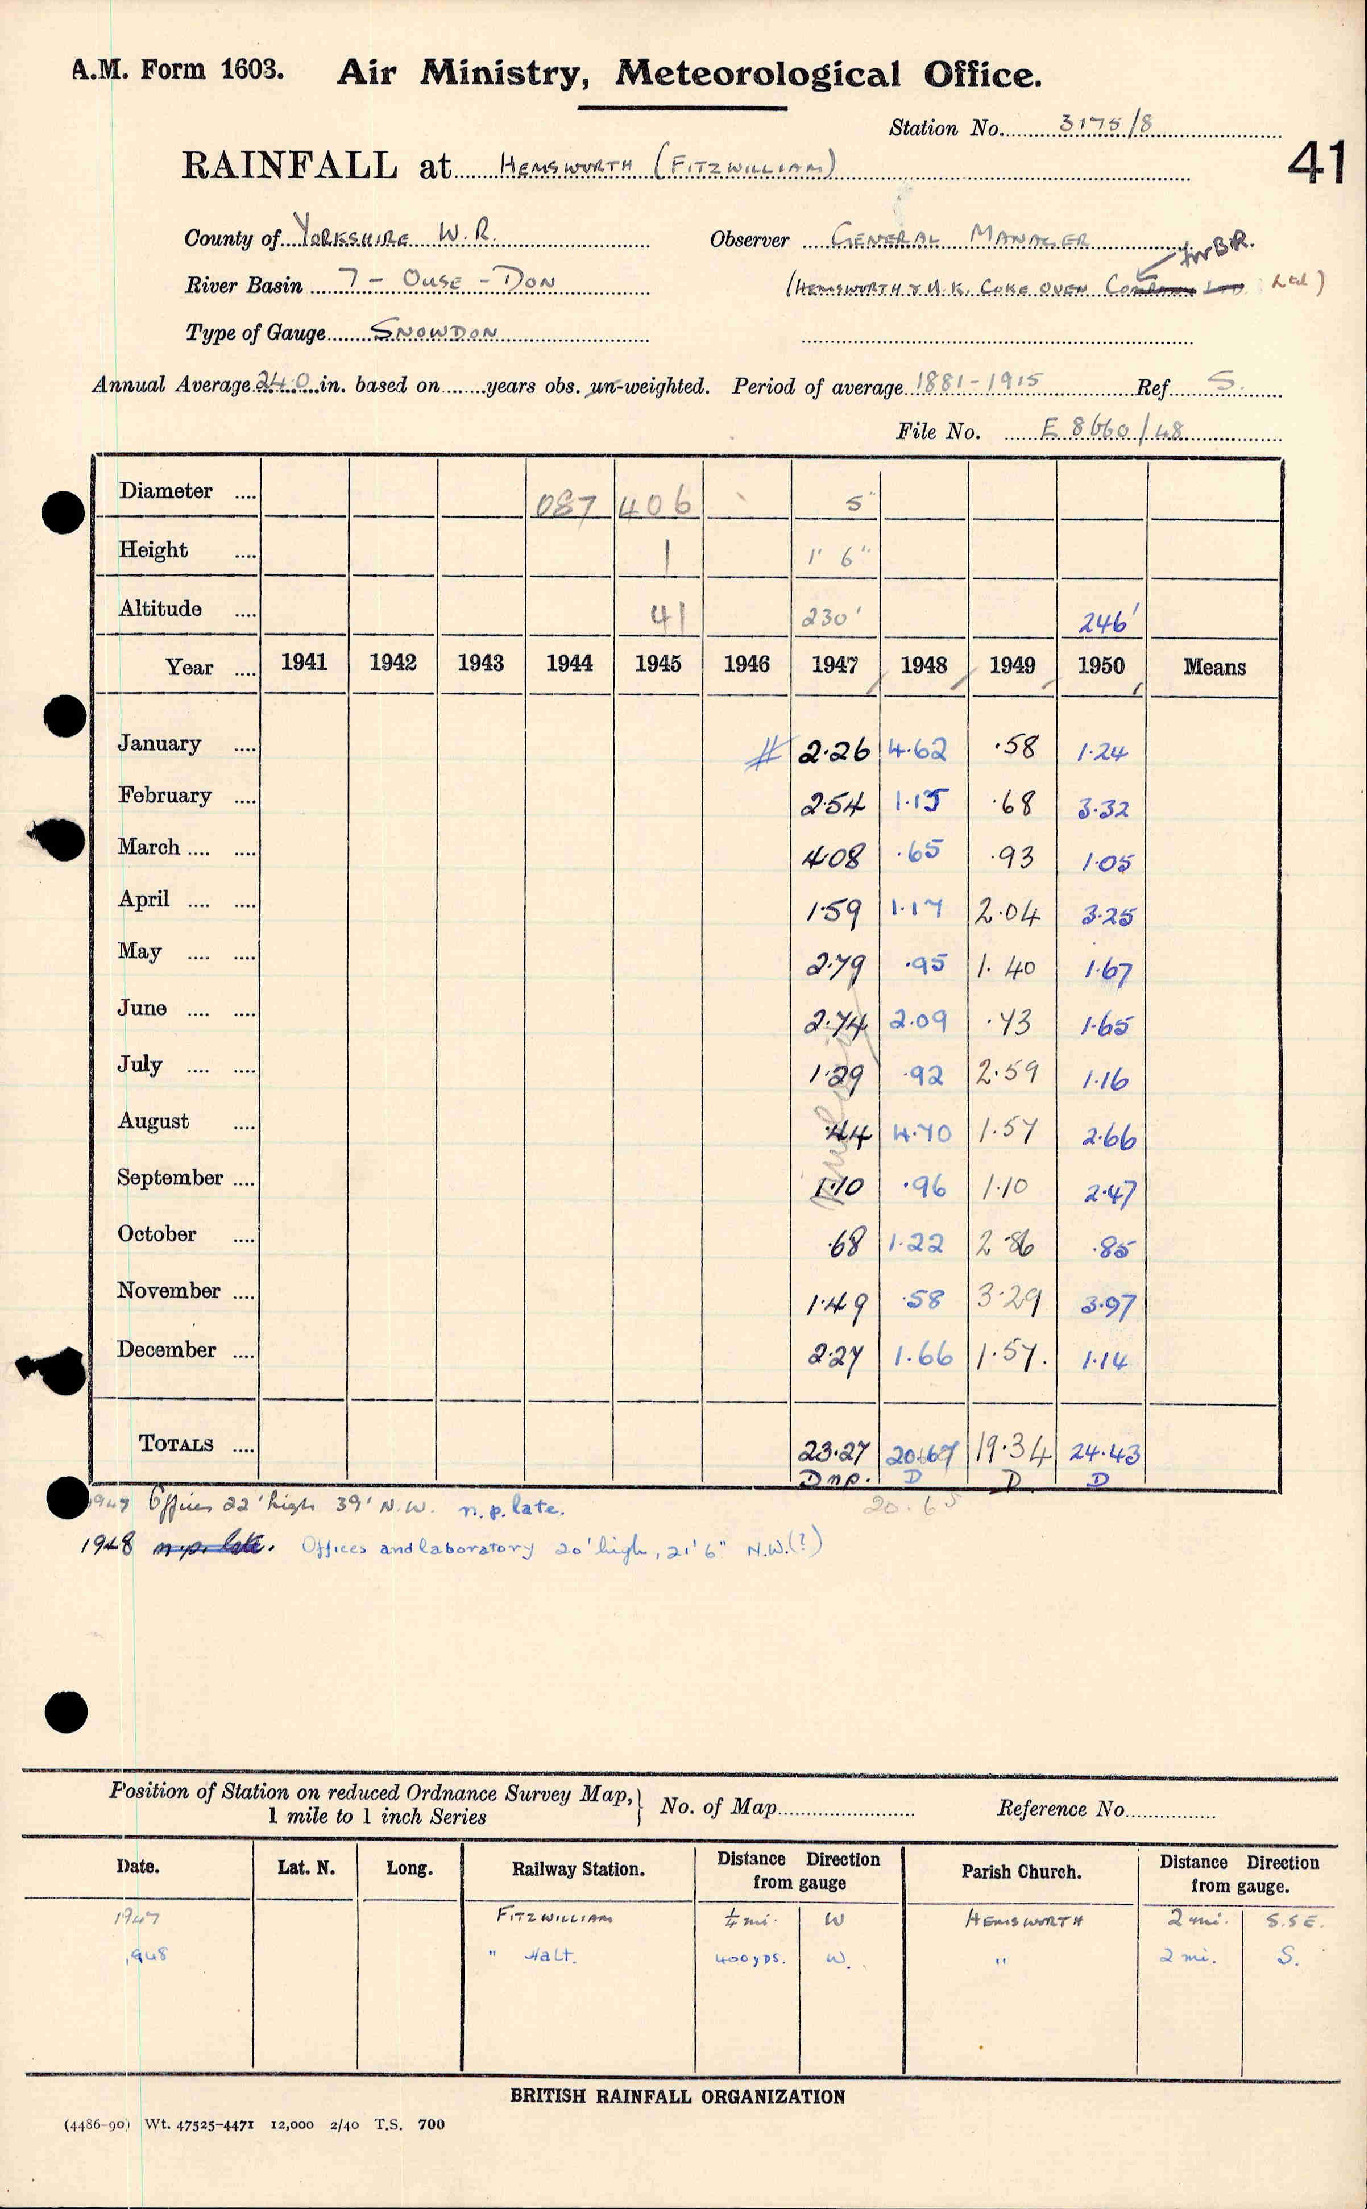 A.M. Form 1603. Air Ministry, Meteorological Office.
Station No. 3175/8
41
RAINFALL at HEMSWORTH (FITZWILLIAM)
County of YORKSHIRE W.R. Observer GENERAL MANAGER
for B.R.
River Basin 7 - OUSE - DON (HEMSWORTH & U.K. COKE OVEN Company Ltd Ltd)
Type of Gauge SNOWDON
Annual Average 24.0 in. based on years obs. un-weighted. Period of average 1881-1915 Ref S.
File No. E 8660/48
Diameter .... 087 406 5"
Height .... 1 1' 6"
Altitude .... 41 230' 246'
Year .... 1941 1942 1943 1944 1945 1946 1947 1948 1949 1950 Means
January .... # 2.26 4.62 .58 1.24
February .... 2.54 1.15 .68 3.32
March .... .... 4.08 .65 .93 1.05
April .... .... 1.59 1.17 2.04 3.25
May .... .... 2.79 .95 1.40 1.67
June .... .... 2.74 2.09 .73 1.65
July .... .... 1.29 .92 2.59 1.16
August .... .44 4.70 1.57 2.66
September .... 1.10 .96 1.10 2.47
October .... .68 1.22 2.86 .85
November .... 1.49 .58 3.29 3.97
December .... 2.27 1.66 1.57. 1.14
TOTALS .... 23.27 20.67 19.34 24.43
D n.p. D D D
1947 Offices 22' high 39' N.W. n.p. late. 20.65
1948 n.p. late. Offices and laboratory 20' high, 21' 6" N.W.(?)
Position of Station on reduced Ordnance Survey Map, } No. of Map Reference No.
1 mile to 1 inch Series
Date. Lat. N. Long. Railway Station. Distance Direction from gauge Parish Church. Distance Direction from gauge.
1947 FITZWILLIAM ¼ mi. W HEMSWORTH 2 mi. S.S.E.
1948 " Halt. 400 yds. W. " 2 mi. S.
BRITISH RAINFALL ORGANIZATION
(4486-90) Wt. 47525-4471 12,000 2/40 T.S. 700